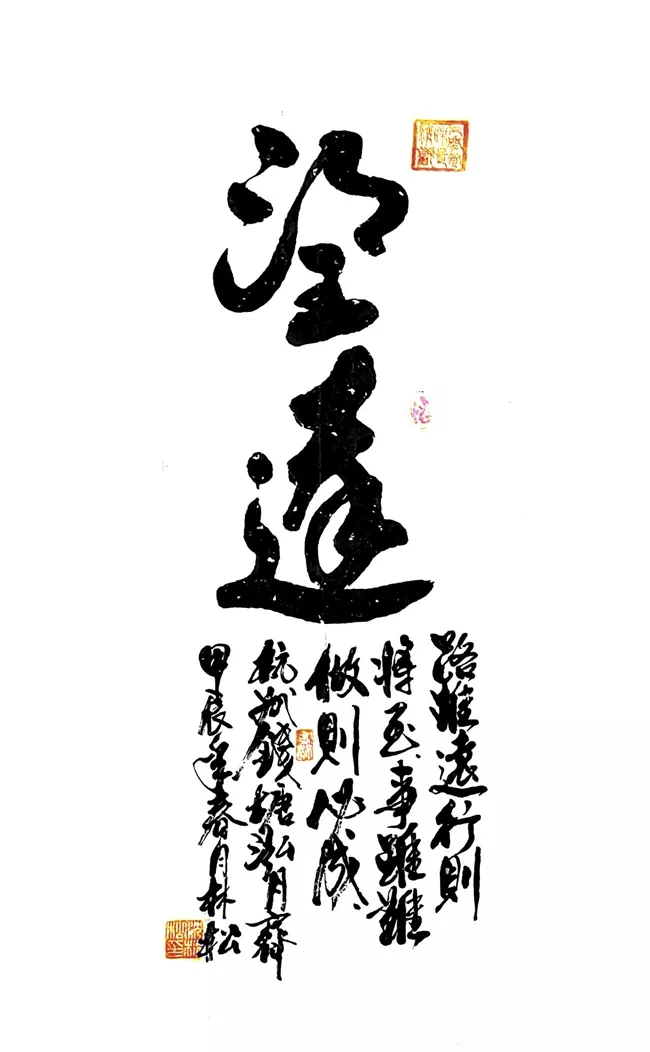 遠
路雖遠行則
將至事雖難
做則必成
杭州錢塘泓月齋
甲辰年春月林松